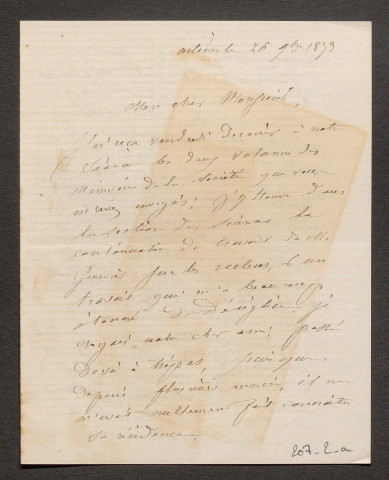 Orléans le 26 9bre 1873
Mon cher Monsieur,
J'ai reçu vendredi dernier à notre
séance les deux volumes des
Mémoires de la Société que vous
m'avez envoyés; j'y trouve dans
la section des sciences la
continuation du travail de M.
sur les rochers, et un
travail qui m'a beaucoup
étonné de Déséglise. je
croyais notre cher ami passé
de vie à trépas, puisque
depuis plusieurs années, il ne
m'avait nullement fait connaître
sa résidence.
207-2-a